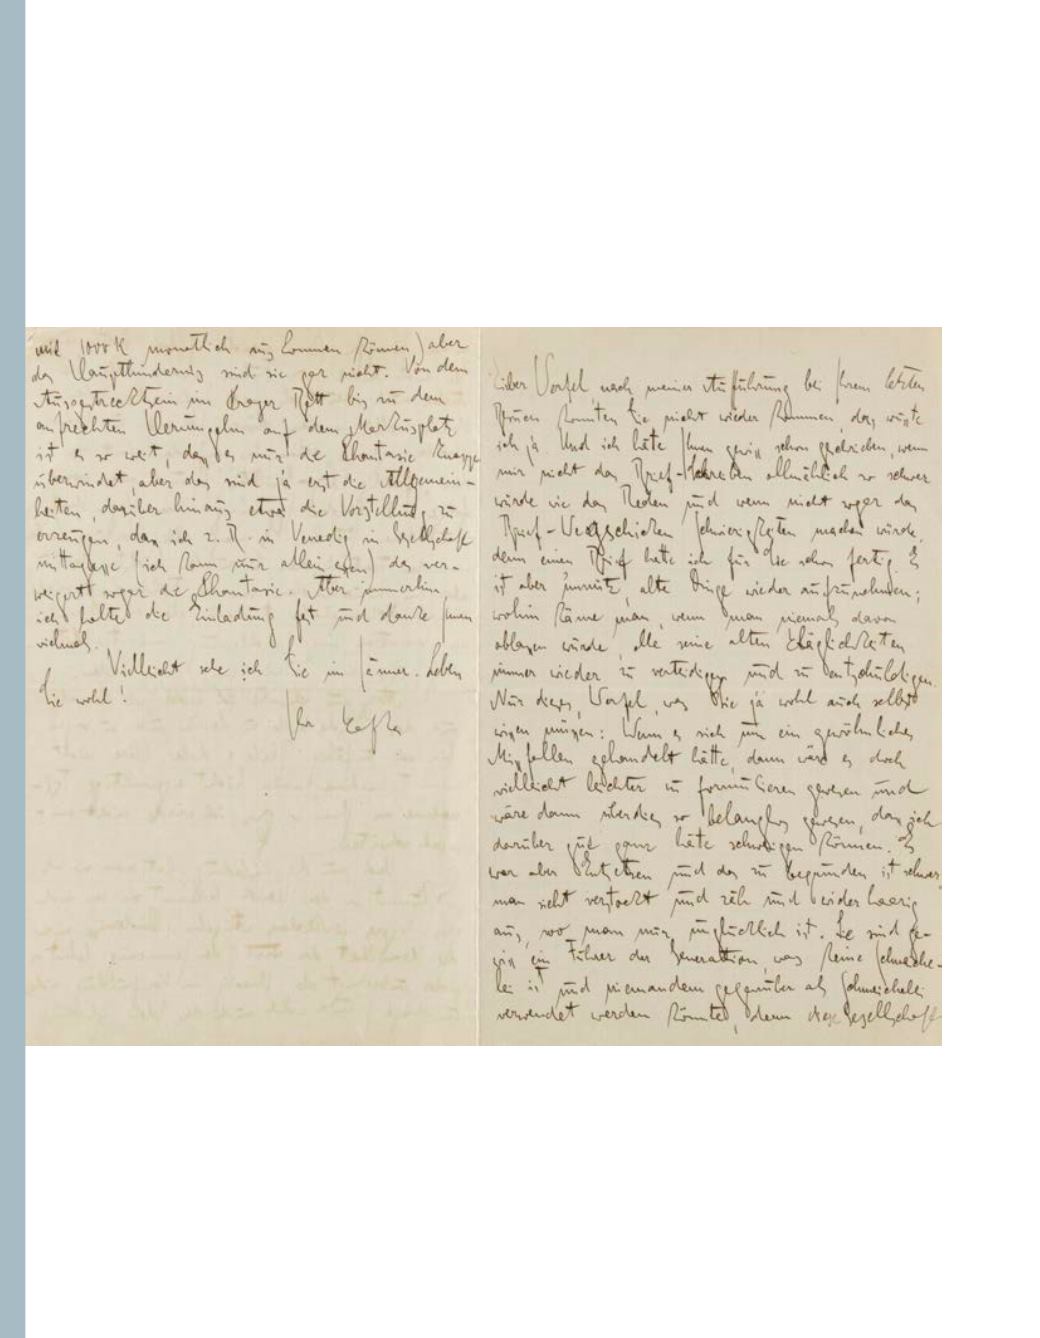 mit 1000 K monatlich auskommen können) aber
das Haupthindernis sind sie gar nicht. Von dem
Ausgestrecktsein im Prager Bett bis zu dem
aufrechten Herumgehn auf dem Markusplatz
ist es so weit, dass es nur die Phantasie knapp
überwindet, aber das sind ja erst die Allgemein-
heiten, darüber hinaus etwa die Vorstellung zu
erzeugen, dass ich z. B. in Venedig in Gesellschaft
mittagesse (ich kann nur allein essen) das ver-
weigert sogar die Phantasie. Aber immerhin,
ich halte die Einladung fest und danke Ihnen
vielmals.
Vielleicht sehe ich Sie im Jänner. Leben
Sie wohl!
Ihr Kafka
Lieber Werfel, nach meiner Aufführung bei Ihrem letzten
Besuch konnten Sie nicht wieder kommen, das wusste
ich ja. Und ich hätte Ihnen gewiss schon geschrieben, wenn
mir nicht das Brief-Schreiben allmählich so schwer
würde wie das Reden und wenn nicht sogar das
Brief-Wegschicken Schwierigkeiten machen würde,
denn einen Brief hatte ich für Sie schon fertig. Es
ist aber unnütz, alte Dinge wieder aufzunehmen;
wohin käme man, wenn man niemals davon
ablassen würde, alle seine alten Kläglichkeiten
immer wieder zu verteidigen und zu entschuldigen.
Nur dieses, Werfel, was Sie ja wohl auch selbst
wissen müssen: Wenn es sich um ein gewöhnliches
Missfallen gehandelt hätte, dann wäre es doch
vielleicht leichter zu formulieren gewesen und
wäre dann überdies so belanglos gewesen, dass ich
darüber gut ganz hätte schweigen können. Es
war aber Entsetzen und das zu begründen ist schwer,
man sieht verstockt und zäh und widerhaarig
aus, wo man nur unglücklich ist. Sie sind ge-
wiss ein Führer der Generation, was keine Schmeiche-
lei ist und niemandem gegenüber als Schmeichelei
verwendet werden könnte, denn diese Gesellschaft